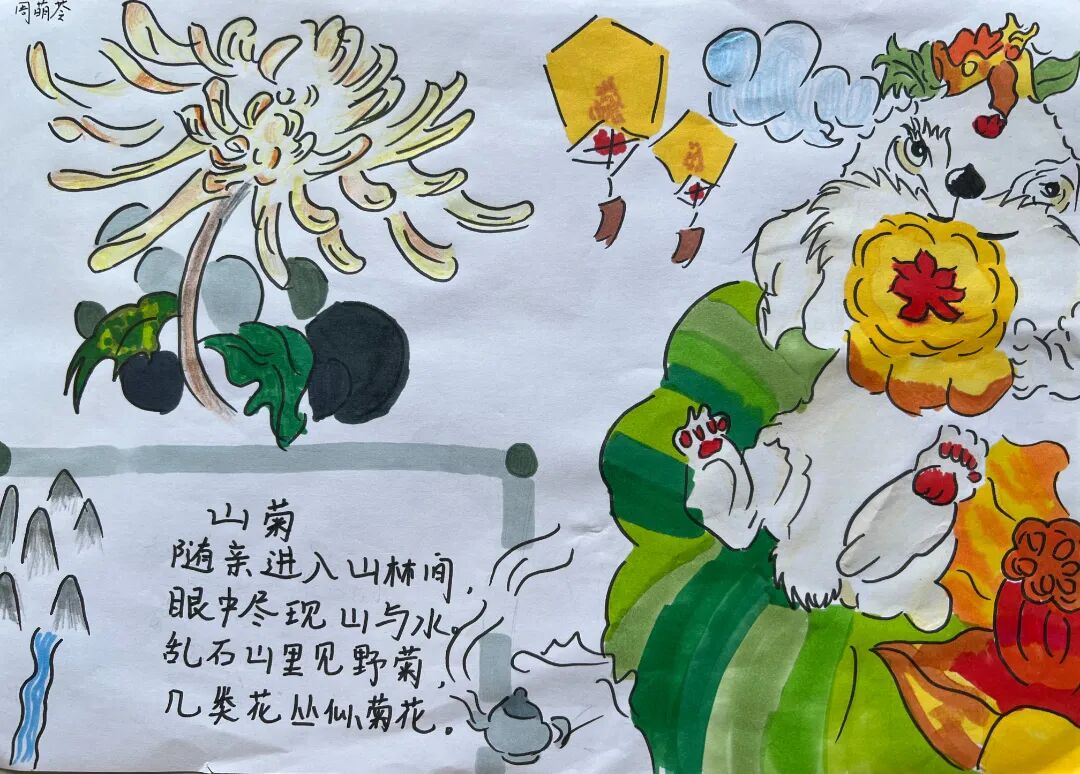 周萌苓
山菊
随亲进入山林间,
眼中尽现山与水。
乱石山里见野菊,
几类花丛似菊花。